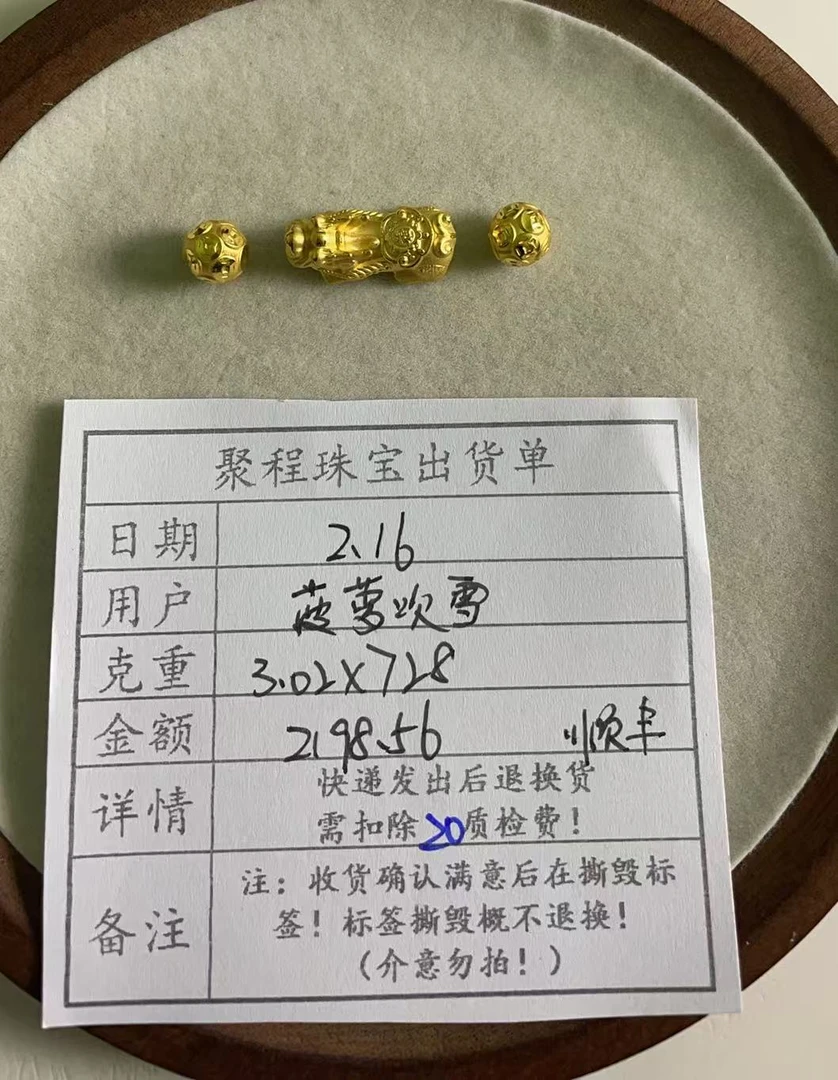 聚程珠宝出货单
日期 2.16
用户 菠萝吹雪
克重 3.02X728
金额 2198.56 顺丰
详情 快递发出后退换货
需扣除20质检费！
备注 注：收货确认满意后在撕毁标
签！标签撕毁概不退换！
（介意勿拍！）